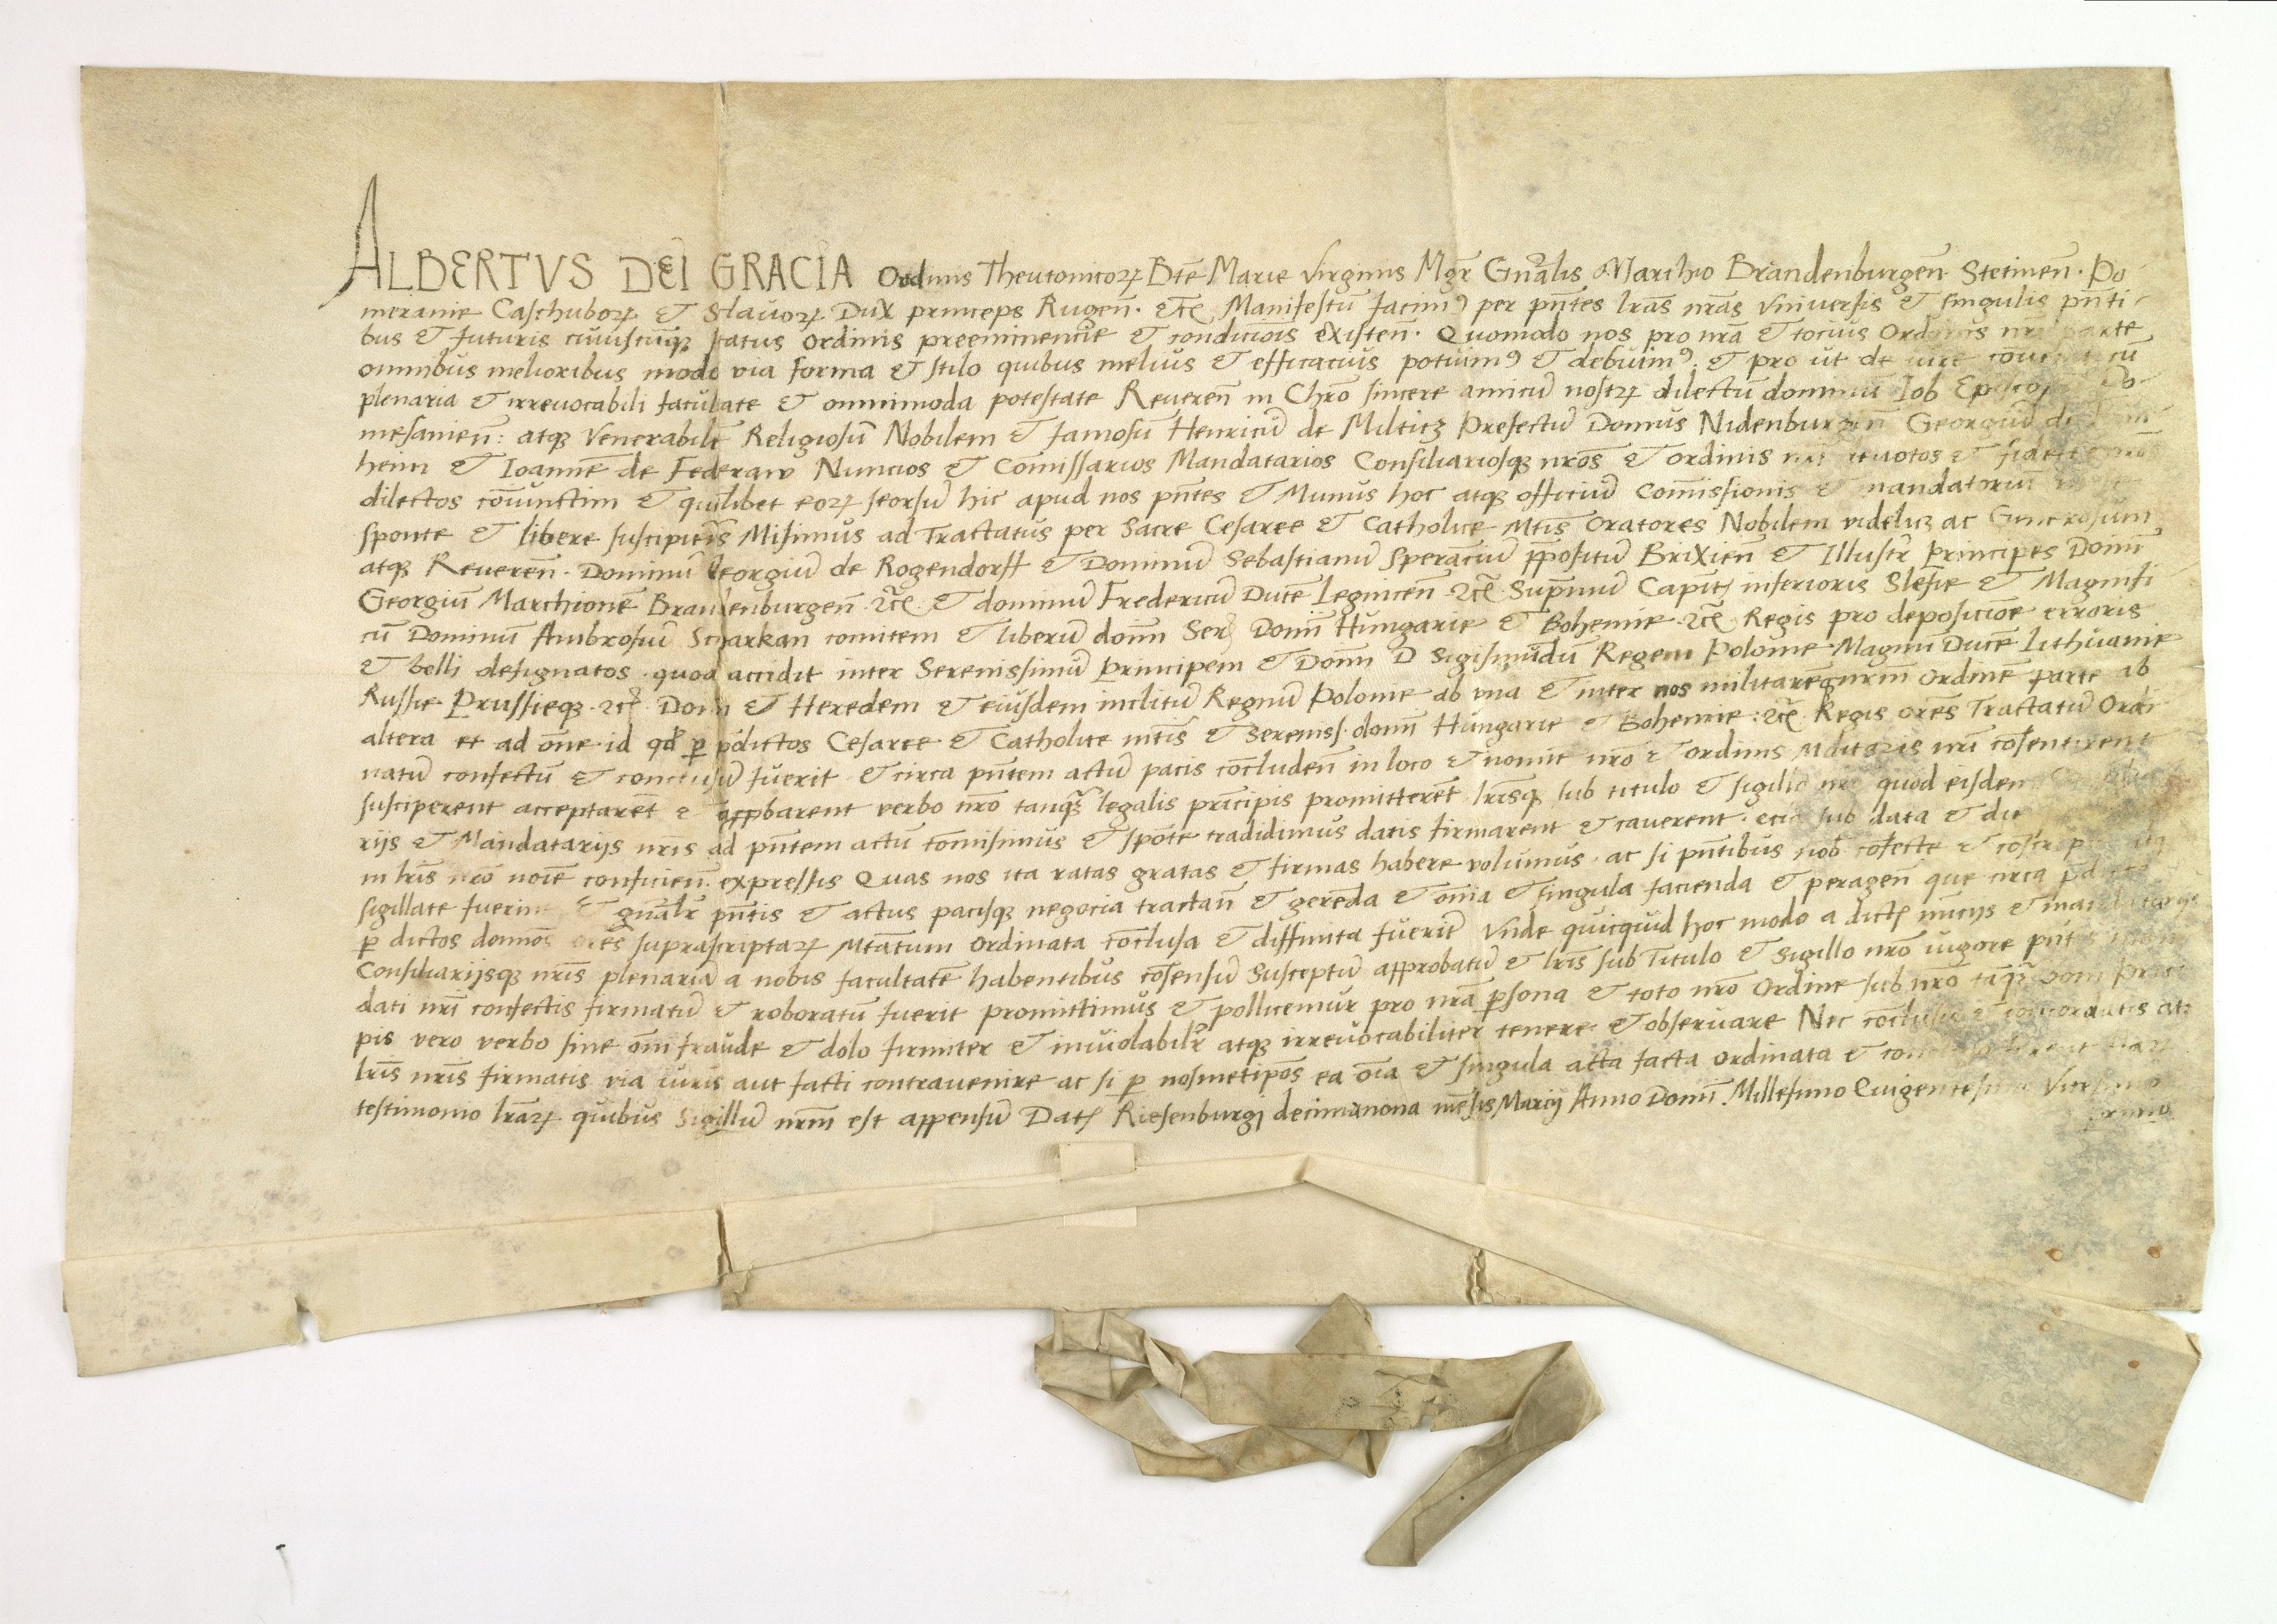 ALBERTVS DEI GRACIA Ordinis Theutonicoꝝ Bte᷎ Marie Virginis Mgr̄ Gn̄alis Marchio Brandenburgen̄ Stetinen̄. Po-
meranie Caschuboꝝ et Sclauoꝝ Dux princeps Rugen̄. etc̄ Manifestū facimꝰ per pn̄tes lr̄as nr̄as vniuersis et singulis pn̄ti-
bus et futuris cuiuscūqꝫ status ordinis preeminencie et condicio̅is existen̄. Quomodo nos pro nr̄a et tocius Ordinis nr̄i parte
omnibus melioribus modo via forma et stilo quibus melius et efficacius potuimꝰ et debuimꝰ. et pro ut de iure cū
plenaria et irreuocabili facultate et omnimoda potestate Reueren̄ in Chro̅ sincere amicū nostrꝝ dilectū dominū Iob Po-
mesanien̄: atqꝫ Venerabile̅ Religiosū Nobilem et famosū Henricū de Milticz Prefectū Domus Nidenburgen̄ Georgiū
heim et Ioanne̅ de Federaw Nuncios et Co̅missarios Mandatarios Consiliariosqꝫ nr̄os et ordinis nr̄i deuotos et
dilectos co̅iunctim et qui̅libet eoꝝ seorsū hic apud nos pn̄tes et Munus hoc atqꝫ officiū Co̅missionis et mandatoriū
sponte et libere suscipien̄s Misimus ad Tractatus per Sacre Cesaree et Catholice Mtis̄ Oratores Nobilem videlicꝫ ac Generosum
atqꝫ Reueren̄. Dominū Georgiū de Rogendorff et Dominū Sebastianū Speranciū p̅positū Brixien̄ et Illustr̄ Principes Domin̄
Georgiū Marchione̅ Brandenburgen̄ ꝛc̄. et dominū Fredericū Duce̅ Legnicen̄ ꝛc̄. Sup̅mū Capit̄ inferioris Slesie et Magnifi
cū Dominū Ambrosiū Scharkan comitem et liberū don̄n Ser Don̄n Hungarie et Bohemie ꝛc̄. Regis pro deposicio̅e erroris
et belli designatos. quod accidit inter Serenissimū Principem et Don̄n D Sigismūdū Regem Polonie Magnū Duce̅ Lithuanie
Russie Prussieqꝫ ꝛc̄. Don̄n et Heredem et eiusdem inclitū Regnū Polonie ab vna et inter nos militare̅qꝫ nr̄m Ordine̅ parte ab
altera et ad om̅e id qd̄ p̱ p̅dictos Cesaree et Catholice mtis̄ et Sereniss. don̄n Hungarie et Bohemie: ꝛc̄. Regis or̄es Tractatū Ordi
natū confectū et conclusū fuerit et circa pn̄tem actū pacis co̅cluden̄ in loco et nomie̅ nr̄o et ordinis Militaris nr̄i co̅sentirent
susciperent acceptare̅t et app̱barent verbo nr̄o tanqꝫ legalis principis promittere̅t lr̄isqꝫ sub titulo et sigillo nr̄o quod eisdem
rijs et Mandatarijs nr̄is ad pn̄tem actū co̅misimus et spo̅te tradidimus datis firmarent et cauerent. eciā sub data et die
in lr̄is nr̄o no̅ie conficien̄. expressis Quas nos ita ratas gratas et firmas habere volumus. ac si pn̄tibus nob̄ co̅fecte et
sigillate fuerint et gn̄alr̄ pn̄tis et actus pacisqꝫ negocia tractan̄ et gerenda et om̅ia et singula facienda et peragen̄ que circa
p̱ dictos domno̅s or̄es suprascriptaꝝ Mtatum ordinata co̅clusa et diffinita fuerit̄ Vnde quicquid hoc modo a dict̄ nuncijs et
Consiliarijsqꝫ nr̄is plenariā a nobis facultate̅ habentibus co̅sensū Susceptū approbatū et lr̄is sub Titulo et Sigillo nr̄o vigore
dati nr̄i confectis firmatū et roboratū fuerit promittimus et pollicemur pro nr̄a p̱sona et toto nr̄o Ordine sub nr̄o
pis vero verbo sine om̅i fraude et dolo firmiter et inuiolabilr̄ atqꝫ irreuocabiliter tenere et obseruare Nec co̅clusis et
lr̄is nr̄is firmatis via iuris aut facti contrauenire ac si p̱ nosmetipo̅s ea om̅ia et singula acta facta ordinata et
testimonio lr̄aꝝ quibus Sigillū nr̄m est appensū Dat̄ Riesenburgi decimanona me̅sis Marcij Anno Domi̅. Millesimo Quigentesimo Vicesimo
primo